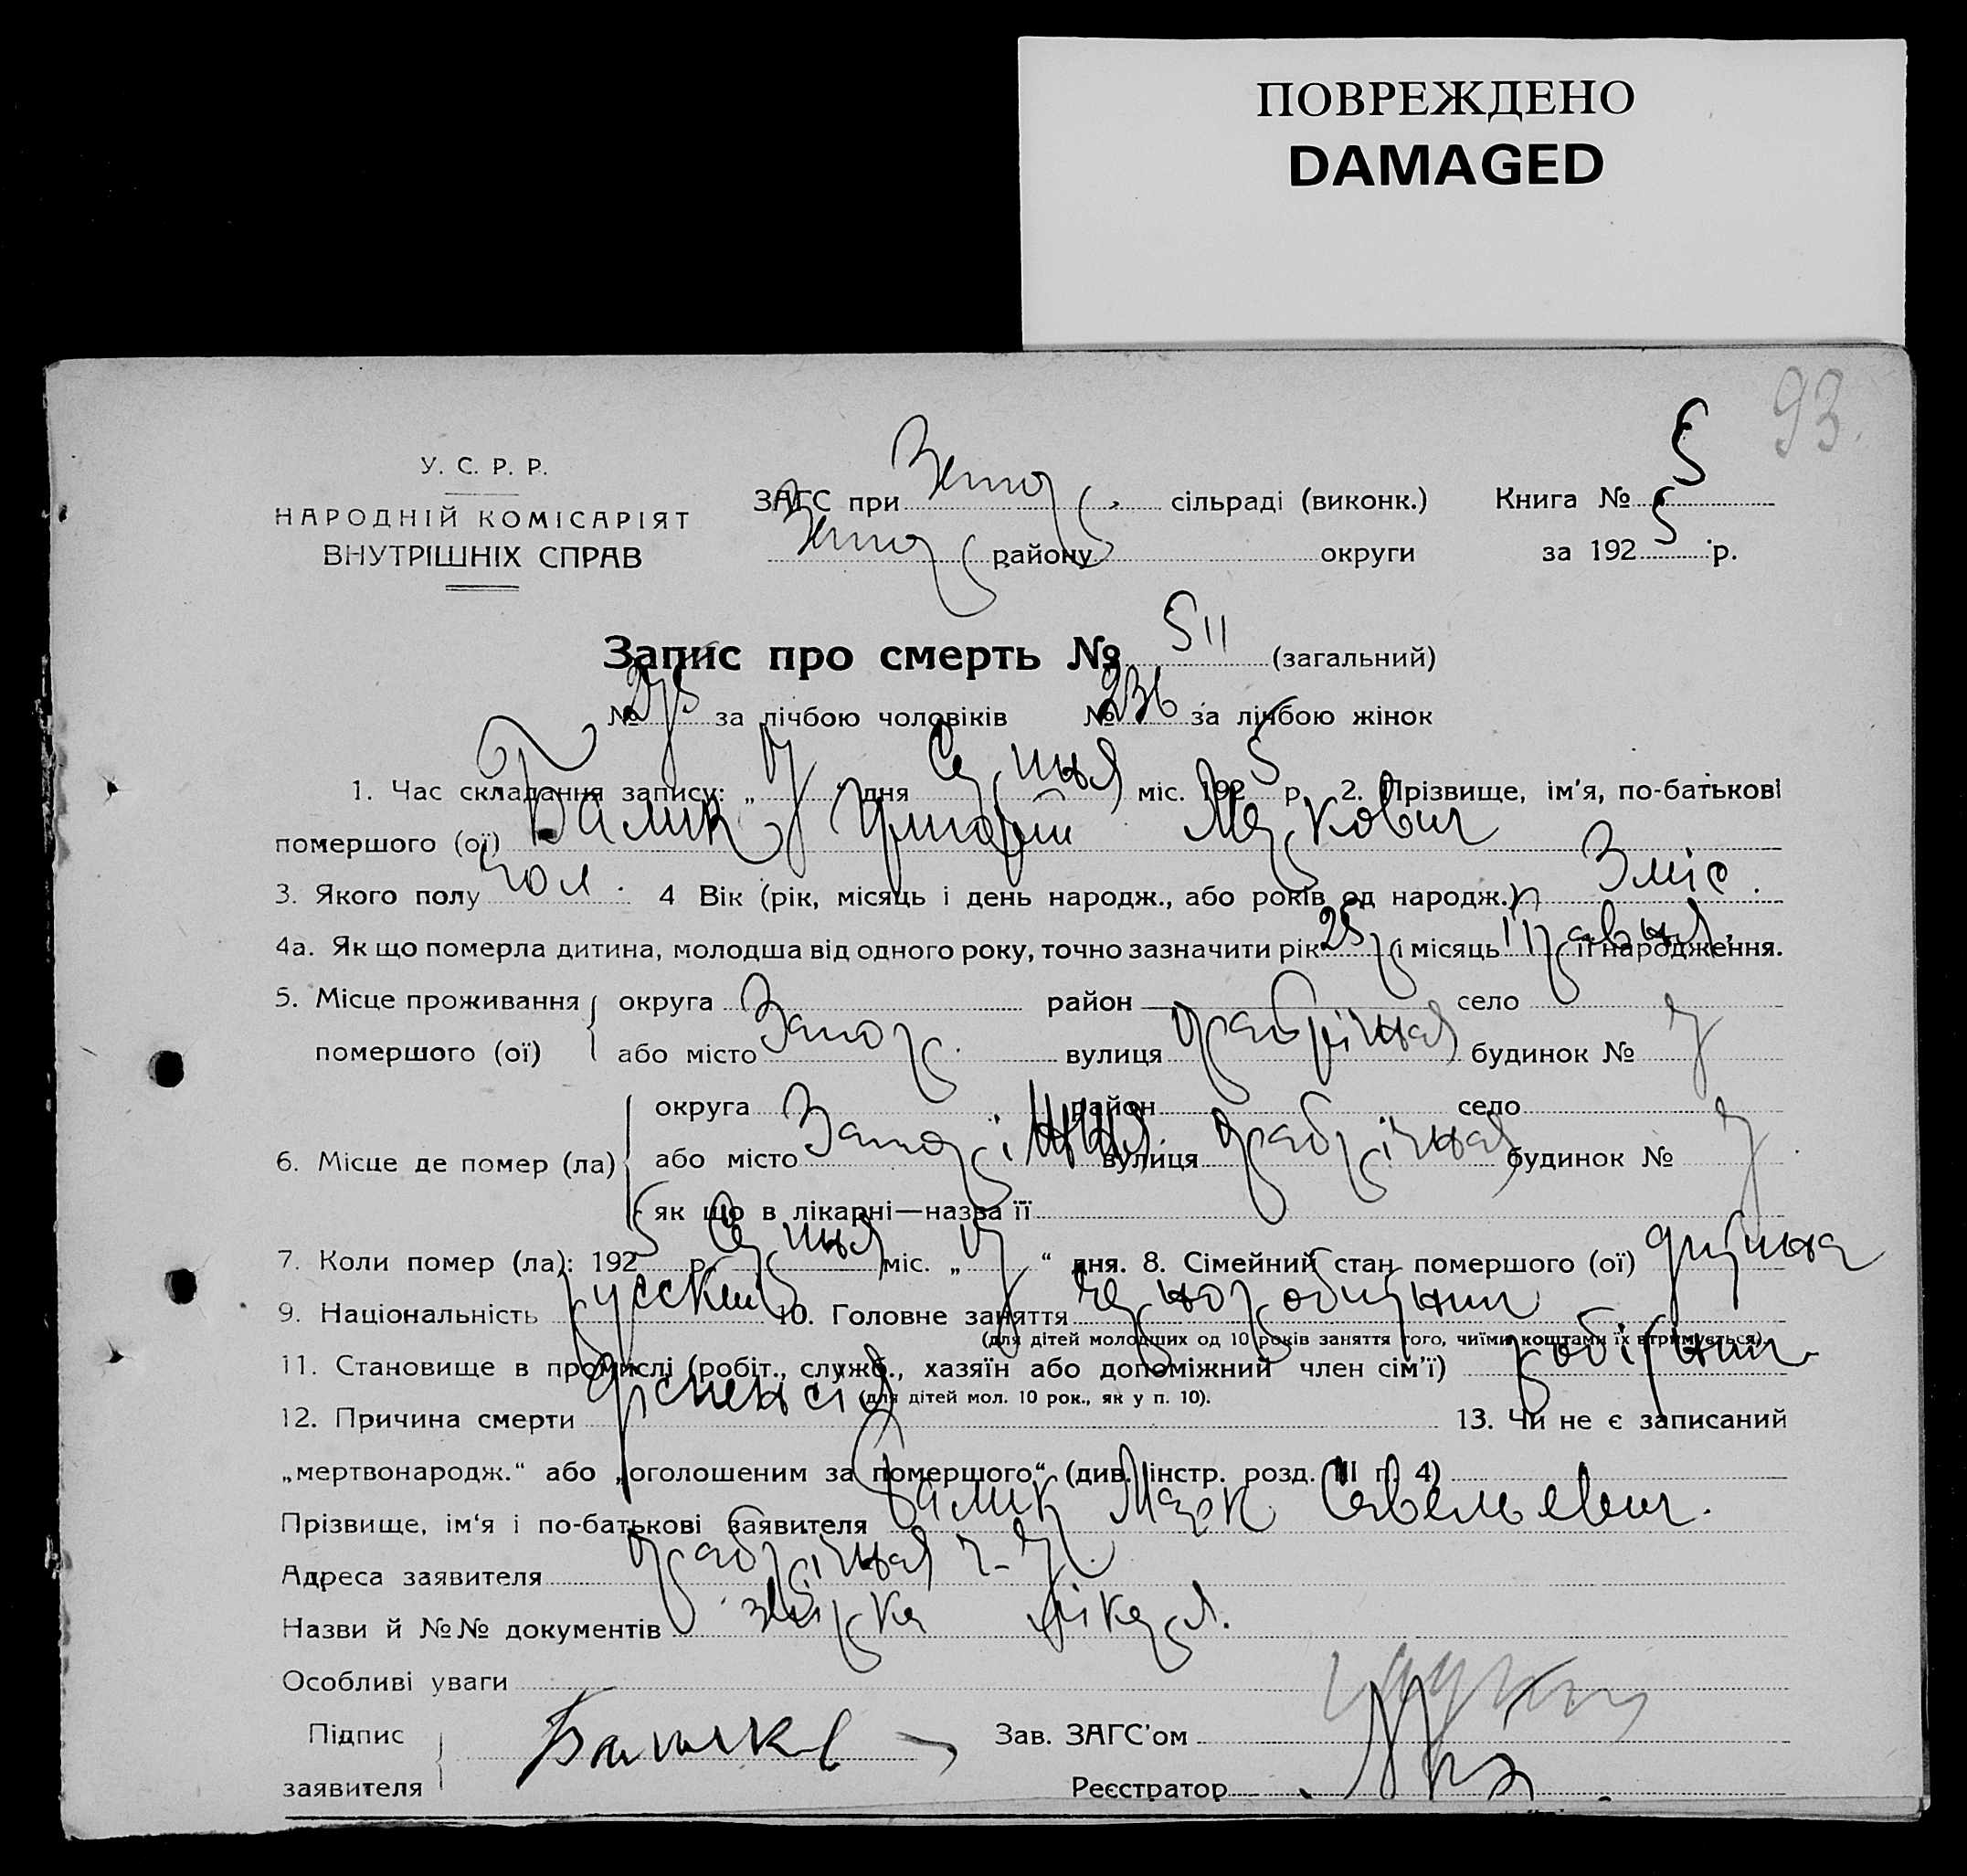 ПОВРЕЖДЕНО
DAMAGED
93.
У. С. Р. Р.
НАРОДНІЙ КОМІСАРІЯТ
ВНУТРІШНІХ СПРАВ
ЗАГС при сільраді (виконк.)
району округи
Книга № 5
за 1925 р.
Запис про смерть № 511 (загальний)
№ 275 за лічбою чоловіків № 236 за лічбою жінок
1. Час складання запису: „ 7 “ дня Серпня міс. 1925 р. 2. Прізвище, ім'я, по-батькові
помершого (ої) Балик Григорий Маркович
3. Якого полу чол. 4 Вік (рік, місяць і день народж., або років од народж.) 3 міс.
4а. Як що померла дитина, молодша від одного року, точно зазначити рік 25 р і місяць травня її народження.
5. Місце проживання округа район село
помершого (ої) або місто Запор. вулиця Фабрічная будинок № 7
6. Місце де помер (ла) округа район село
або місто Запоріжжя вулиця Фабрічная будинок № 7
як що в лікарні—назва її
7. Коли помер (ла): 1925 р. Серпня міс. „ 7 “ дня. 8. Сімейний стан помершого (ої) дитина
9. Національність русский 10. Головне заняття черноробочий
(для дітей молодших од 10 років заняття того, чиїми коштами їх втримується).
11. Становище в промислі (робіт., служб., хазяїн або допоміжний член сім'ї) робітник
(для дітей мол. 10 рок., як у п. 10).
12. Причина смерти 13. Чи не є записаний
„мертвонародж.“ або „оголошеним за помершого“ (див. інстр. розд. III п. 4)
Прізвище, ім'я і по-батькові заявителя Балик Марк Савельевич.
Адреса заявителя Фабрічная ч-7.
Назви й №№ документів довідка лікаря.
Особливі уваги
Підпис
заявителя
Зав. ЗАГС'ом
Реєстратор